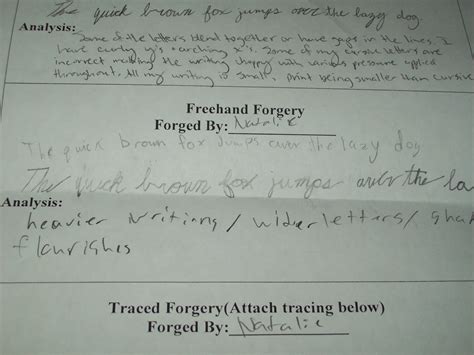 The quick brown fox jumps over the lazy dog.
Analysis: Some of the letters blend together or have gaps in the lines. I
have curly y's + arching x's. Some of my cursive letters are
incorrect making the writing choppy with various pressure applied
throughout. All my writing is small, print being smaller than cursive
Freehand Forgery
Forged By: Natalie
The quick brown fox Jumps over the lazy dog
The quick brown fox jumps over the la
Analysis:
heavier writing / wider letters/
flourishes
Traced Forgery(Attach tracing below)
Forged By: Natalie